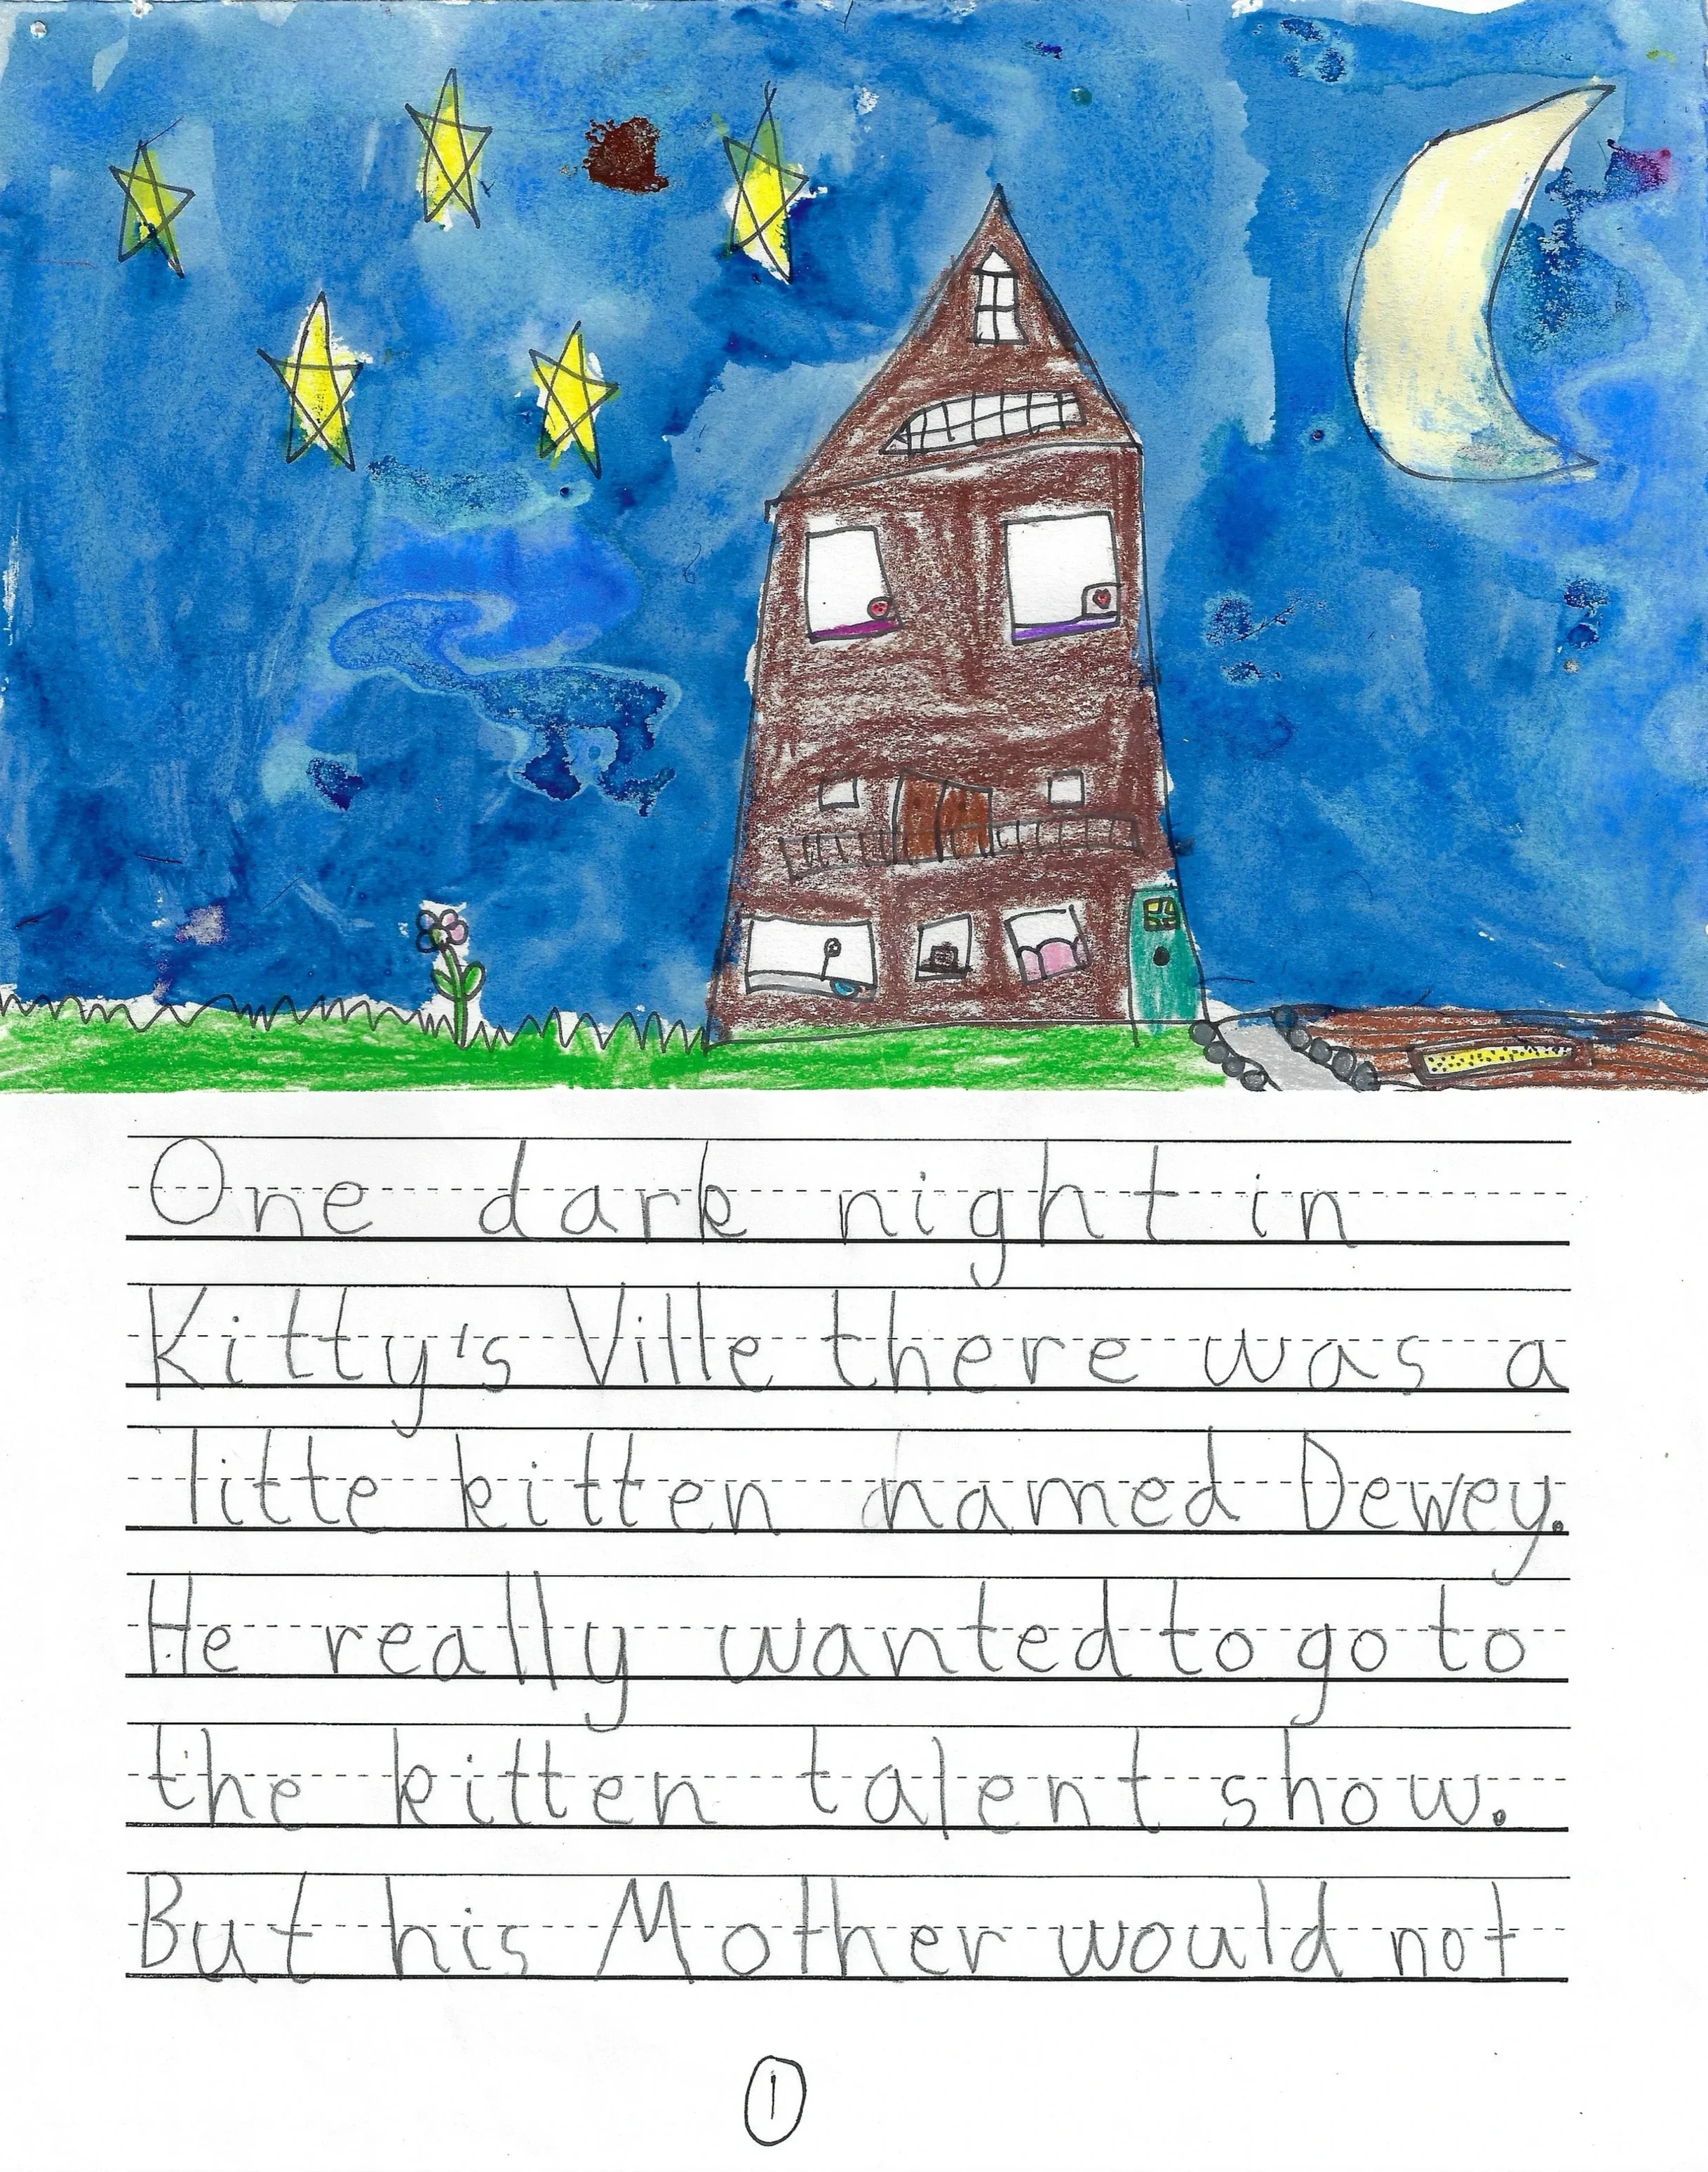 One dark night in
Kitty's Ville there was a
litte kitten named Dewey.
He really wanted to go to
the kitten talent show.
But his Mother would not
1